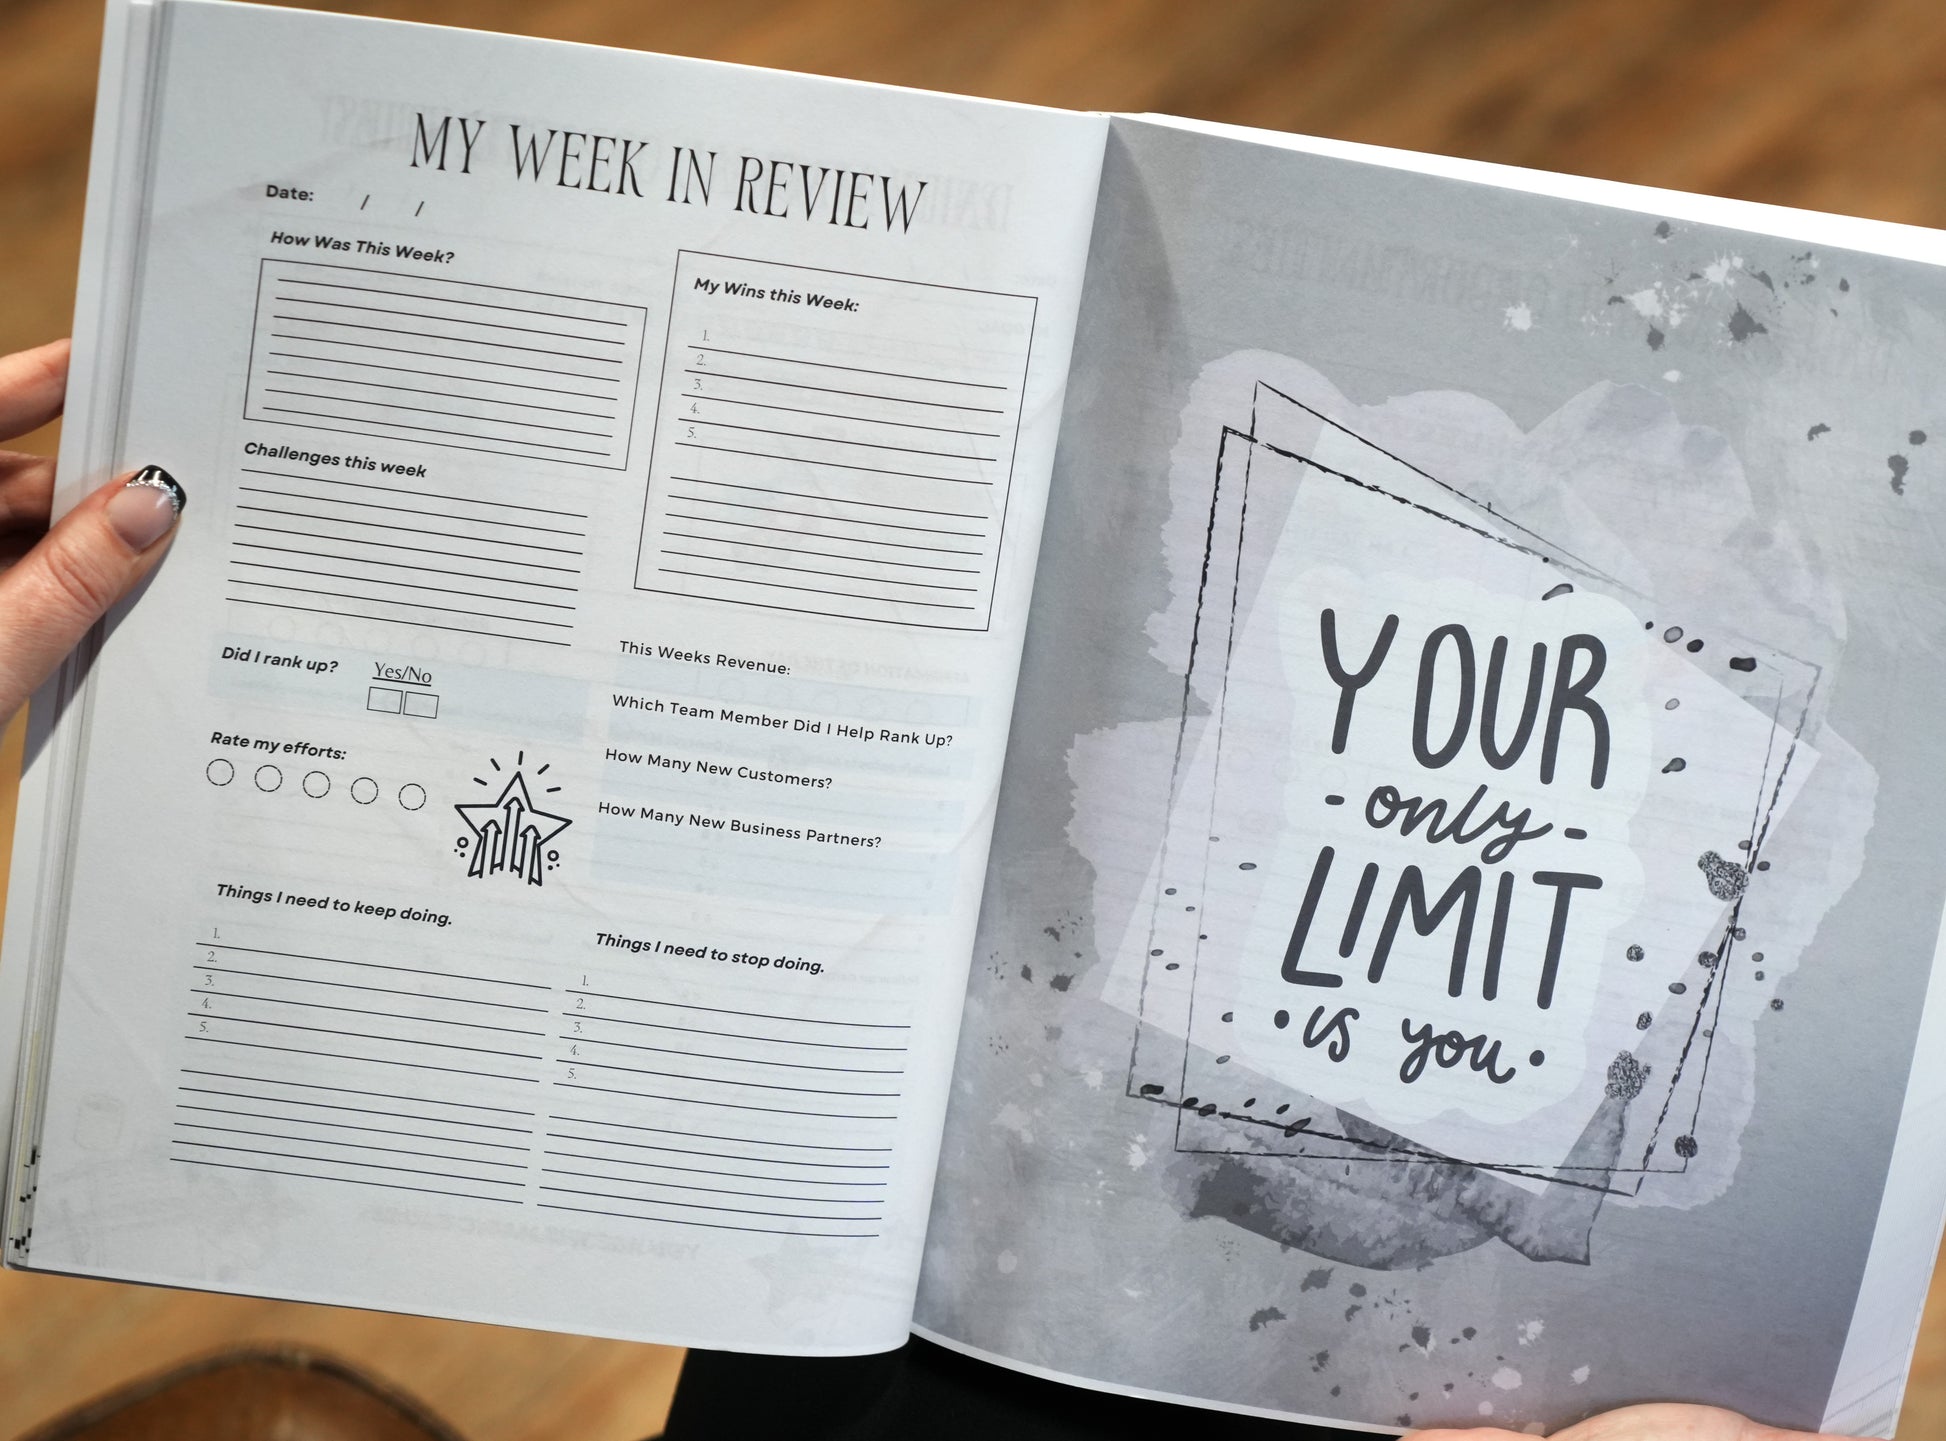 MY WEEK IN REVIEW
Date: / /
How Was This Week?
Challenges this week
My Wins this Week:
1.
2.
3.
4.
5.
Did I rank up? Yes/No
Rate my efforts:
This Weeks Revenue:
Which Team Member Did I Help Rank Up?
How Many New Customers?
How Many New Business Partners?
Things I need to keep doing.
1.
2.
3.
4.
5.
Things I need to stop doing.
1.
2.
3.
4.
5.
YOUR
- only -
LIMIT
• is you •